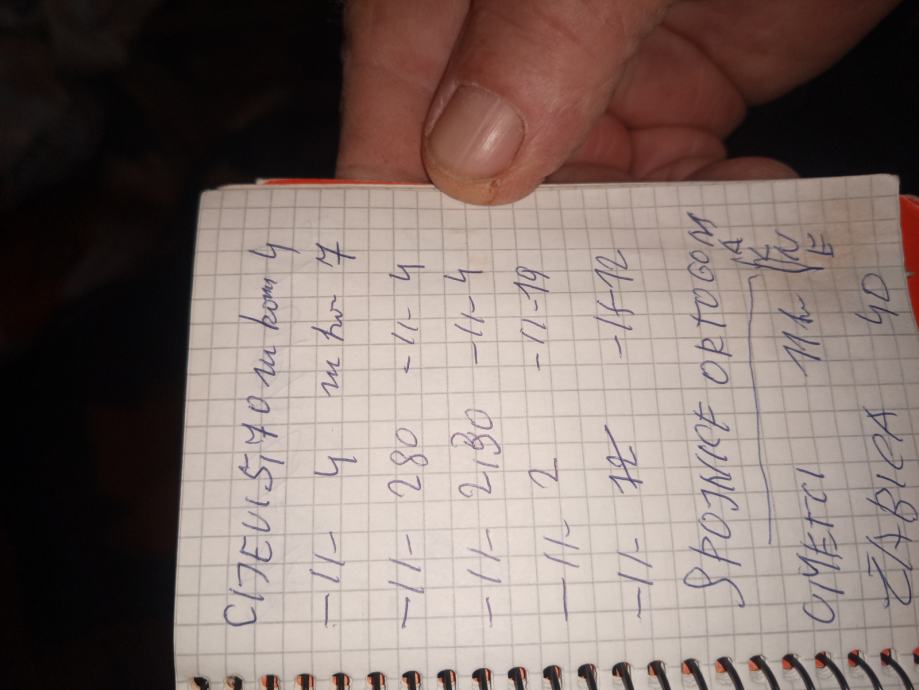 CIJEVI 5,70 m kom 4
-11- 4 m kom 7
-11- 280 -11- 4
-11- 2,80 -11- 4
-11- 2 -11- 19
-11- -11- 12
SPOJNICE ORTOGONALNE
11 kom
ŽABICA 40